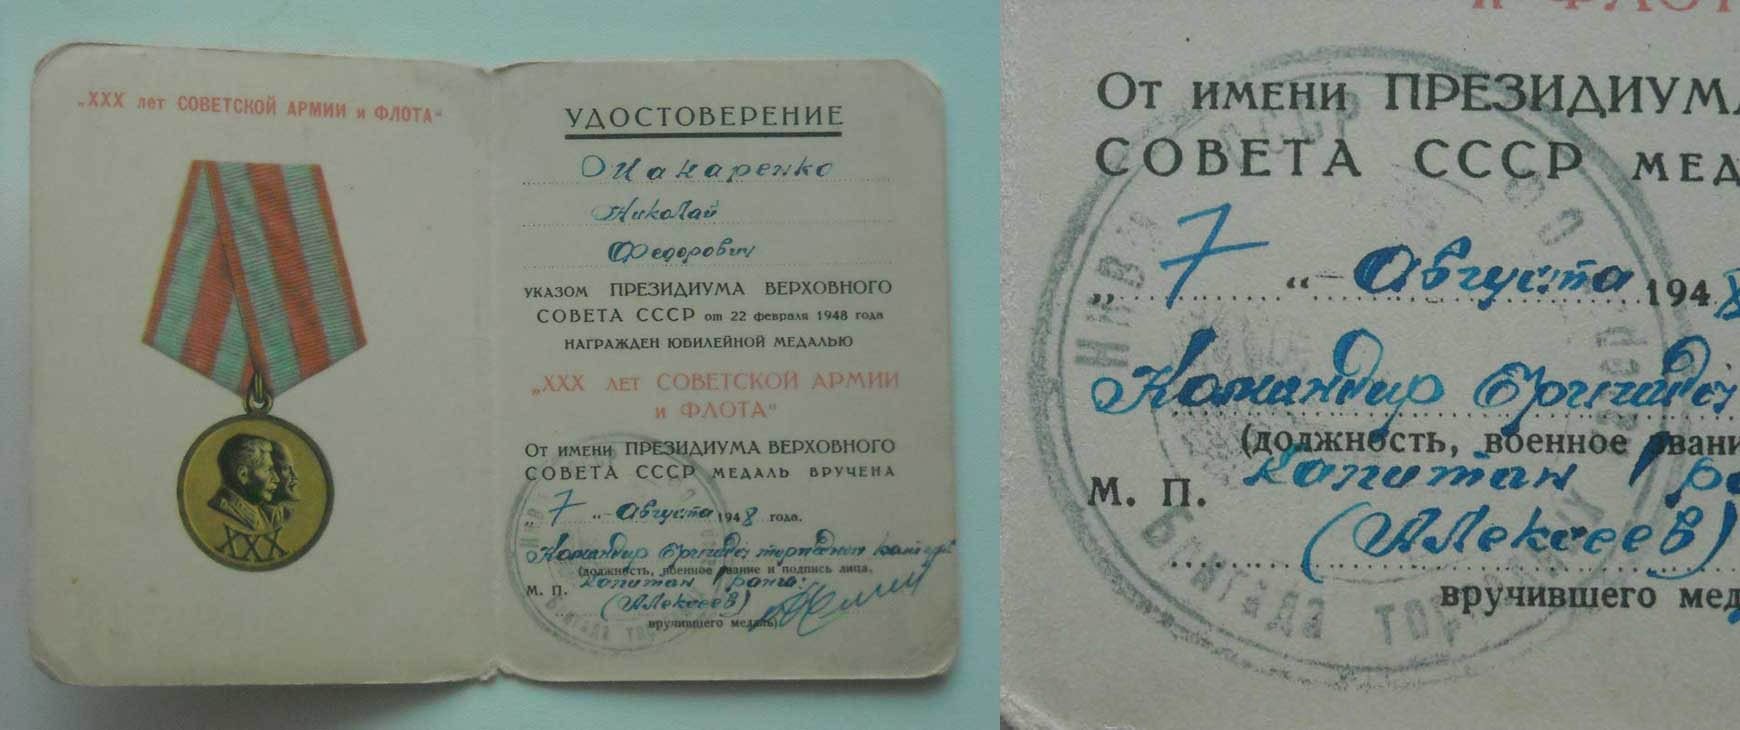 „XXX лет СОВЕТСКОЙ АРМИИ и ФЛОТА“
XXX
УДОСТОВЕРЕНИЕ
Николай
Федорович
УКАЗОМ ПРЕЗИДИУМА ВЕРХОВНОГО
СОВЕТА СССР от 22 февраля 1948 года
НАГРАЖДЕН ЮБИЛЕЙНОЙ МЕДАЛЬЮ
„XXX ЛЕТ СОВЕТСКОЙ АРМИИ
и ФЛОТА“
От имени ПРЕЗИДИУМА ВЕРХОВНОГО
СОВЕТА СССР МЕДАЛЬ ВРУЧЕНА
„7“ Августа 1948 года.
Командир Бригады торпедных катеров
(должность, военное звание и подпись лица,
М. П. капитан 1 ранга
(Алексеев)
вручившего медаль)
и ФЛОТ
От имени ПРЕЗИДИУМА
СОВЕТА СССР МЕД
„7“ Августа 1948
Командир Бригады
(должность, военное звани
М. П. капитан 1 ра
(Алексеев)
вручившего мед
СССР
Бригада тор